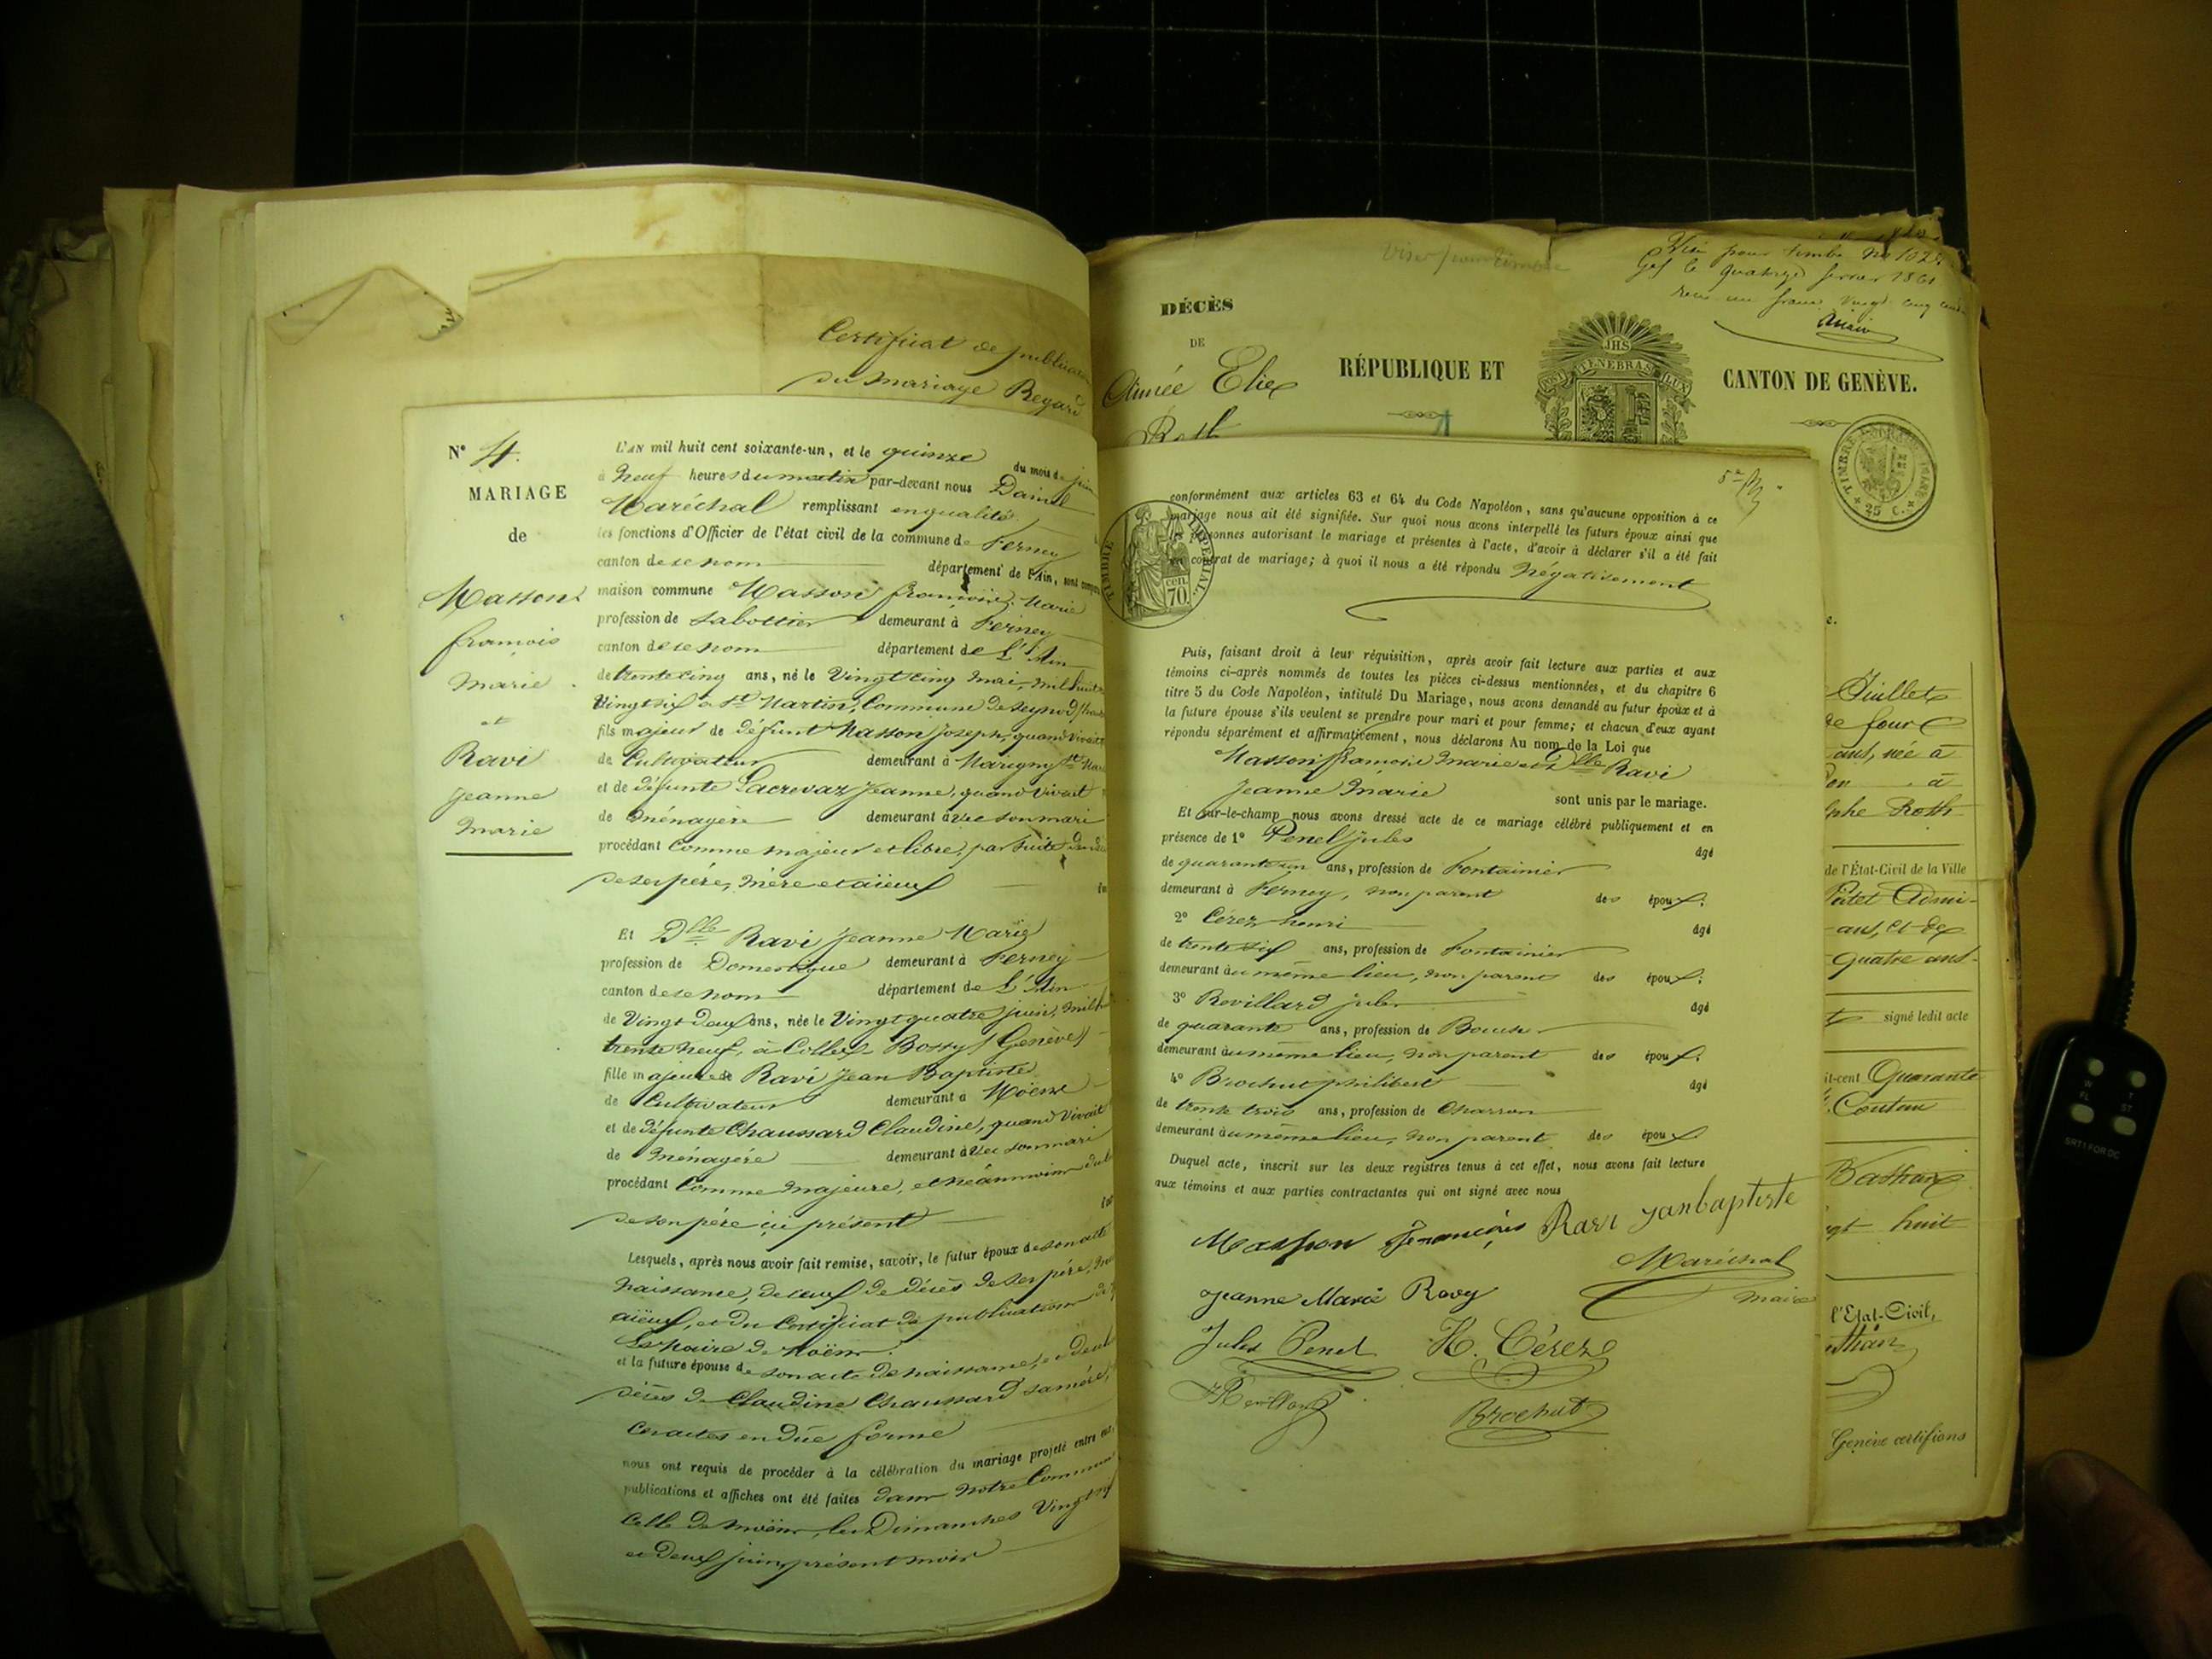 Certificat de publication
du mariage Regard
N° 4.
MARIAGE
de
Masson
françois
marie
et
Ravi
jeanne
marie
L'AN mil huit cent soixante-un, et le quinze du mois de juin
à neuf heures du matin par-devant nous Daniel
Maréchal remplissant en qualité
les fonctions d'Officier de l'état civil de la commune de Ferney
canton de ce nom département de l'Ain, sont
maison commune Masson françois, Marie
profession de Sabottier demeurant à Ferney
canton de ce nom département de L'Ain
de trente cinq ans, né le Vingt cinq mai, mil huit
Vingt six à St Martin, Commune de Seynod
fils majeur de défunt Masson Joseph, quand Vivait
de Cultivateur demeurant à Marigny St
et de défunte Lacrevaz Jeanne, quand Vivait
de Ménagère demeurant avec son mari
procédant Comme majeur et libre, par suite
de ses père, mère et aïeux
Et Dlle Ravi Jeanne Marie
profession de Domestique demeurant à Ferney
canton de ce nom département de L'Ain
de Vingt deux ans, née le Vingt quatre juin, mil
trente neuf, à Collex-Bossy (Genève)
fille majeure de Ravi Jean Baptiste
de Cultivateur demeurant à Moëns
et de défunte Chaussard Claudine, quand Vivait
de Ménagère demeurant avec son mari
procédant Comme majeure, et néanmoins du
de son père ici présent
Lesquels, après nous avoir fait remise, savoir, le futur époux de son acte
naissance, de ceux de décès de ses père,
aïeux, et du Certificat de publication
le Maire de Moëns.
et la future épouse de son acte de naissance,
décès de Claudine Chaussard sa mère,
Ces actes en dûe forme
nous ont requis de procéder à la célébration du mariage projeté entre eux
publications et affiches ont été faites dans notre Commune
Celle de moëns, les Dimanches Vingt
et deux juin, présent mois
conformément aux articles 63 et 64 du Code Napoléon, sans qu'aucune opposition à ce
mariage nous ait été signifiée. Sur quoi nous avons interpellé les futurs époux ainsi que
les personnes autorisant le mariage et présentes à l'acte, d'avoir à déclarer s'il a été fait
un contrat de mariage; à quoi il nous a été répondu Négativement
TIMBRE IMPÉRIAL.
cen.
70.
Puis, faisant droit à leur réquisition, après avoir fait lecture aux parties et aux
témoins ci-après nommés de toutes les pièces ci-dessus mentionnées, et du chapitre 6
titre 5 du Code Napoléon, intitulé Du Mariage, nous avons demandé au futur époux et à
la future épouse s'ils veulent se prendre pour mari et pour femme; et chacun d'eux ayant
répondu séparément et affirmativement, nous déclarons Au nom de la Loi que
Masson françois Marie et Dlle Ravi
Jeanne Marie sont unis par le mariage.
Et sur-le-champ nous avons dressé acte de ce mariage célébré publiquement et en
présence de 1° Penel Jules âgé
de quarante un ans, profession de Fontainier
demeurant à Ferney, non parent des époux;
2° Cérez henri âgé
de trente six ans, profession de Fontainier
demeurant au même lieu, non parent des époux;
3° Rovillard jules âgé
de quarante ans, profession de Boucher
demeurant au même lieu, non parent des époux;
4° Brochut philibert âgé
de trente trois ans, profession de Charron
demeurant au même lieu, non parent des époux
Duquel acte, inscrit sur les deux registres tenus à cet effet, nous avons fait lecture
aux témoins et aux parties contractantes qui ont signé avec nous
Masson François Ravi janbaptiste
Maréchal
maire
Jeanne Marie Ravy
Jules Penel H. Cérez
Brochut
Viser pour timbre
Visé pour timbre No
Gef le quatorze fevrier 1861
reçu un franc vingt cinq
DÉCÈS
DE
Aimée Elise
Roth
RÉPUBLIQUE ET CANTON DE GENÈVE.
JHS
POST TENEBRAS LUX
25 C.
e.
Juillet
de four
ans, née à
à
Roth
de l'État-Civil de la Ville
ans, et de
quatre ans
signé ledit acte
it-cent Quarante
Coutau
huit
l'Etat-Civil,
Genève certifions